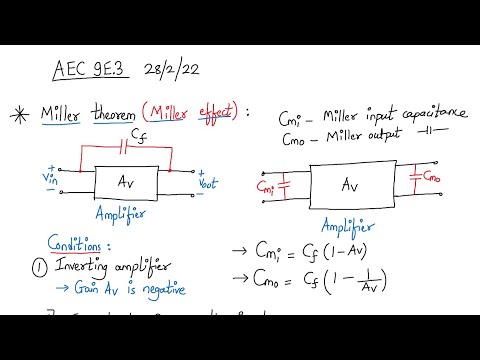 AEC 9E.3 28/2/22
* Miller theorem (Miller effect) :
Cmi - Miller input capacitance
Cmo - Miller output ⊣⊢
Cf
+ Vin -
Av
+ Vout -
Amplifier
Cmi
Av
Cmo
Amplifier
Conditions :
① Inverting amplifier
→ Gain Av is negative
→ Cmi = Cf (1-Av)
→ Cmo = Cf (1 - 1/Av)